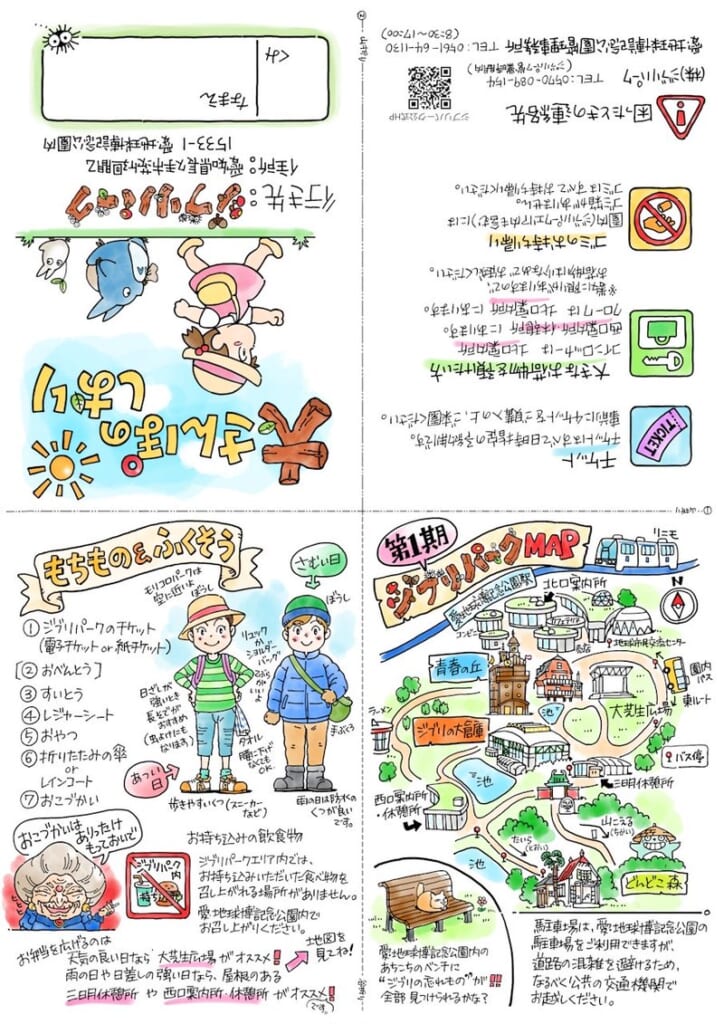 大さんぽの
しおり
行き先：ジブリパーク
住所：愛知県長久手市茨ケ廻間乙
1533-1 愛・地球博記念公園内
くみ
なまえ
TICKET
チケット
チケットはすべて日時指定の予約制です。
事前にチケットをご購入の上、ご来園ください。
大きなお荷物を預けたい方
コインロッカーは 北口案内所
西口案内所・休憩所 にあります。
クロークは 北口案内所 にあります。
※数に限りがありますので、
お荷物は少なめでお越しください。
ゴミのお持ち帰り
園内(ジブリパークエリア内も含む)には
ゴミ箱がありません。
ゴミはすべてお持ち帰りください。
困ったときの連絡先
ジブリパーク公式HP
(株)ジブリパーク
TEL：0570-089-154
(ジブリパーク営業時間内)
愛・地球博記念公園管理事務所 TEL 0561-64-1130
(8:30〜17:00)
もちもの&ふくそう
①ジブリパークのチケット
(電子チケット or 紙チケット)
[②おべんとう]
③すいとう
④レジャーシート
⑤おやつ
⑥折りたたみの傘
or
レインコート
⑦おこづかい
モリコロパークは
空に近いよ
ぼうし
さむい日
ぼうし
リュックか
ショルダー
バッグ
だといいよ
日ざしが
強いとき
長そでが
おすすめ
(虫よけにも
なります)
タオル
腰に下げ
なくても
OK
手ぶくろ
あつい日
歩きやすいくつ(スニーカー
など)
雨の日は防水の
くつが良い
です。
おこづかいは
ありったけ
もっておいで
お持ち込みの飲食物
ジブリパーク
内
持ち込み
ジブリパークエリア内では、
お持ち込みいただいた食べ物を
召し上がれる場所がありません。
愛・地球博記念公園内で
お召し上がりください。
地図を
見てね!
お弁当を広げるのは
天気の良い日なら 大芝生広場 がオススメ!
雨の日や日差しの強い日なら、屋根のある
三日月休憩所 や 西口案内所・休憩所 がオススメ!!
です。
第1期
ジブリパークMAP
リニモ
愛・地球博記念公園駅
北口案内所
コンビニ
カフェテリア
売店
地球市民交流センター
N
青春の丘
園内
バス
東ルート
池
大芝生広場
ラーメン
ジブリの大倉庫
バス停
三日月休憩所
池
西口案内所
・休憩所
たいら(とおい)
山こえる
(ちかい)
池
どんどこ森
愛・地球博記念公園内の
あちこちのベンチに
"ジブリの忘れもの"が!!
全部見つけられるかな?
駐車場は、愛・地球博記念公園の
駐車場をご利用できますが、
道路の混雑を避けるため、
なるべく公共の交通機関で
お越しください。